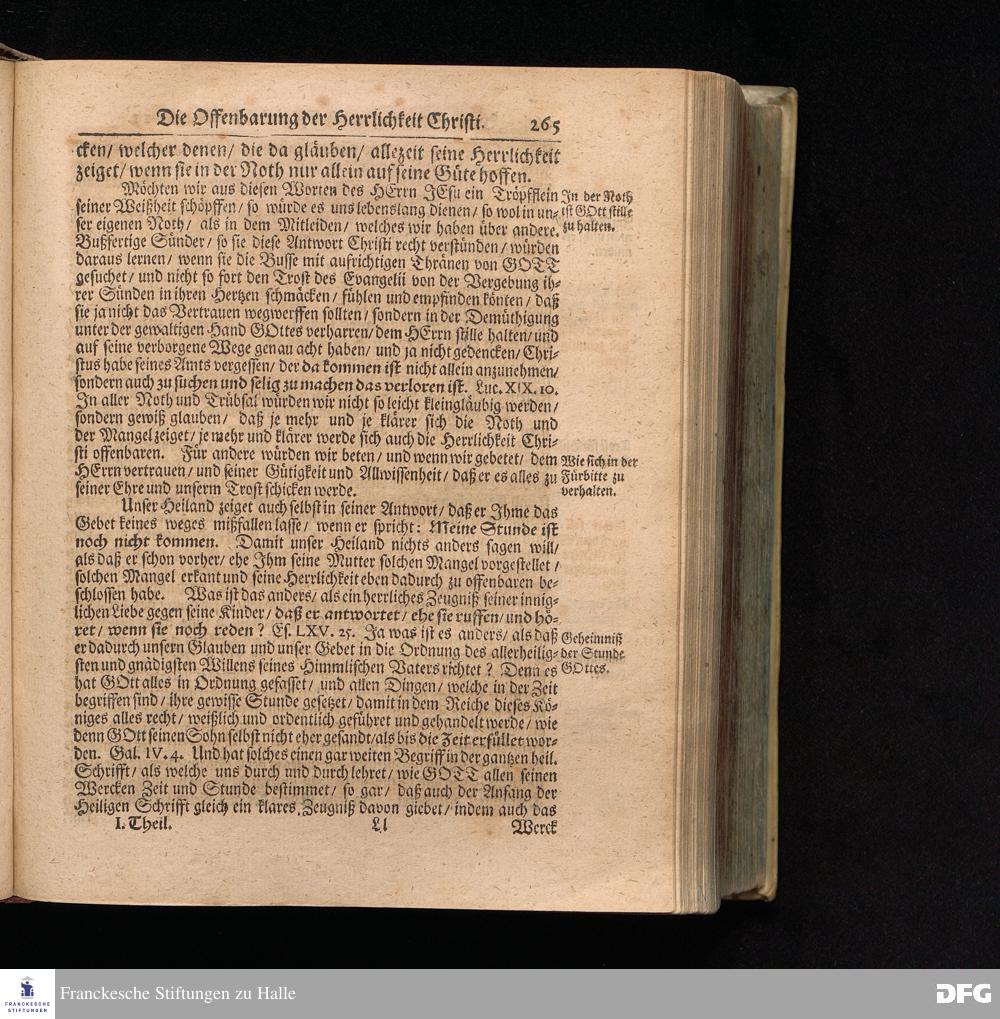 Die Offenbarung der Herrlichkeit Christi. 265
cken/ welcher denen/ die da gläuben/ allezeit seine Herrlichkeit
zeiget/ wenn sie in der Noth nur allein auf seine Güte hoffen.
Möchten wir aus diesen Worten des HErrn JEsu ein Tröpfflein
seiner Weißheit schöpffen/ so würde es uns lebenslang dienen/ so wol in un-
ser eigenen Noth/ als in dem Mitleiden/ welches wir haben über andere.
In der Noth
ist GOtt stille
zu halten.
Bußfertige Sünder/ so sie diese Antwort Christi recht verstünden/ würden
daraus lernen/ wenn sie die Busse mit aufrichtigen Thränen von GOTT
gesuchet/ und nicht so fort den Trost des Evangelii von der Vergebung ih-
rer Sünden in ihren Hertzen schmäcken/ fühlen und empfinden könten/ daß
sie ja nicht das Vertrauen wegwerffen sollten/ sondern in der Demüthigung
unter der gewaltigen Hand GOttes verharren/ dem HErrn stille halten/ und
auf seine verborgene Wege genau acht haben/ und ja nicht gedencken/ Chri-
stus habe seines Amts vergessen/ der da kommen ist nicht allein anzunehmen/
sondern auch zu suchen und selig zu machen das verloren ist. Luc. XIX. 10.
In aller Noth und Trübsal würden wir nicht so leicht kleingläubig werden/
sondern gewiß glauben/ daß je mehr und je klärer sich die Noth und
der Mangel zeiget/ je mehr und klärer werde sich auch die Herrlichkeit Chri-
sti offenbaren. Für andere würden wir beten/ und wenn wir gebetet/ dem
HErrn vertrauen/ und seiner Gütigkeit und Allwissenheit/ daß er es alles zu
seiner Ehre und unserm Trost schicken werde.
Wie sich in der
Fürbitte zu
verhalten.
Unser Heiland zeiget auch selbst in seiner Antwort/ daß er Ihme das
Gebet keines weges mißfallen lasse/ wenn er spricht: Meine Stunde ist
noch nicht kommen. Damit unser Heiland nichts anders sagen will/
als daß er schon vorher/ ehe Ihm seine Mutter solchen Mangel vorgestellet/
solchen Mangel erkant und seine Herrlichkeit eben dadurch zu offenbaren be-
schlossen habe. Was ist das anders/ als ein herrliches Zeugniß seiner innig-
lichen Liebe gegen seine Kinder/ daß er antwortet/ ehe sie ruffen/ und hö-
ret/ wenn sie noch reden? Es. LXV. 25. Ja was ist es anders/ als daß
er dadurch unsern Glauben und unser Gebet in die Ordnung des allerheilig-
sten und gnädigsten Willens seines Himmlischen Vaters richtet? Denn es
Geheimniß
der Stunde
GOttes.
hat GOtt alles in Ordnung gefasset/ und allen Dingen/ welche in der Zeit
begriffen sind/ ihre gewisse Stunde gesetzet/ damit in dem Reiche dieses Kö-
niges alles recht/ weißlich und ordentlich geführet und gehandelt werde/ wie
denn GOtt seinen Sohn selbst nicht eher gesandt/ als bis die Zeit erfüllet wor-
den. Gal. IV. 4. Und hat solches einen gar weiten Begriff in der gantzen heil.
Schrifft/ als welche uns durch und durch lehret/ wie GOTT allen seinen
Wercken Zeit und Stunde bestimmet/ so gar/ daß auch der Anfang der
Heiligen Schrifft gleich ein klares Zeugniß davon giebet/ indem auch das
I. Theil. Ll Werck
FRANCKESCHE
STIFTUNGEN
Franckesche Stiftungen zu Halle
DFG